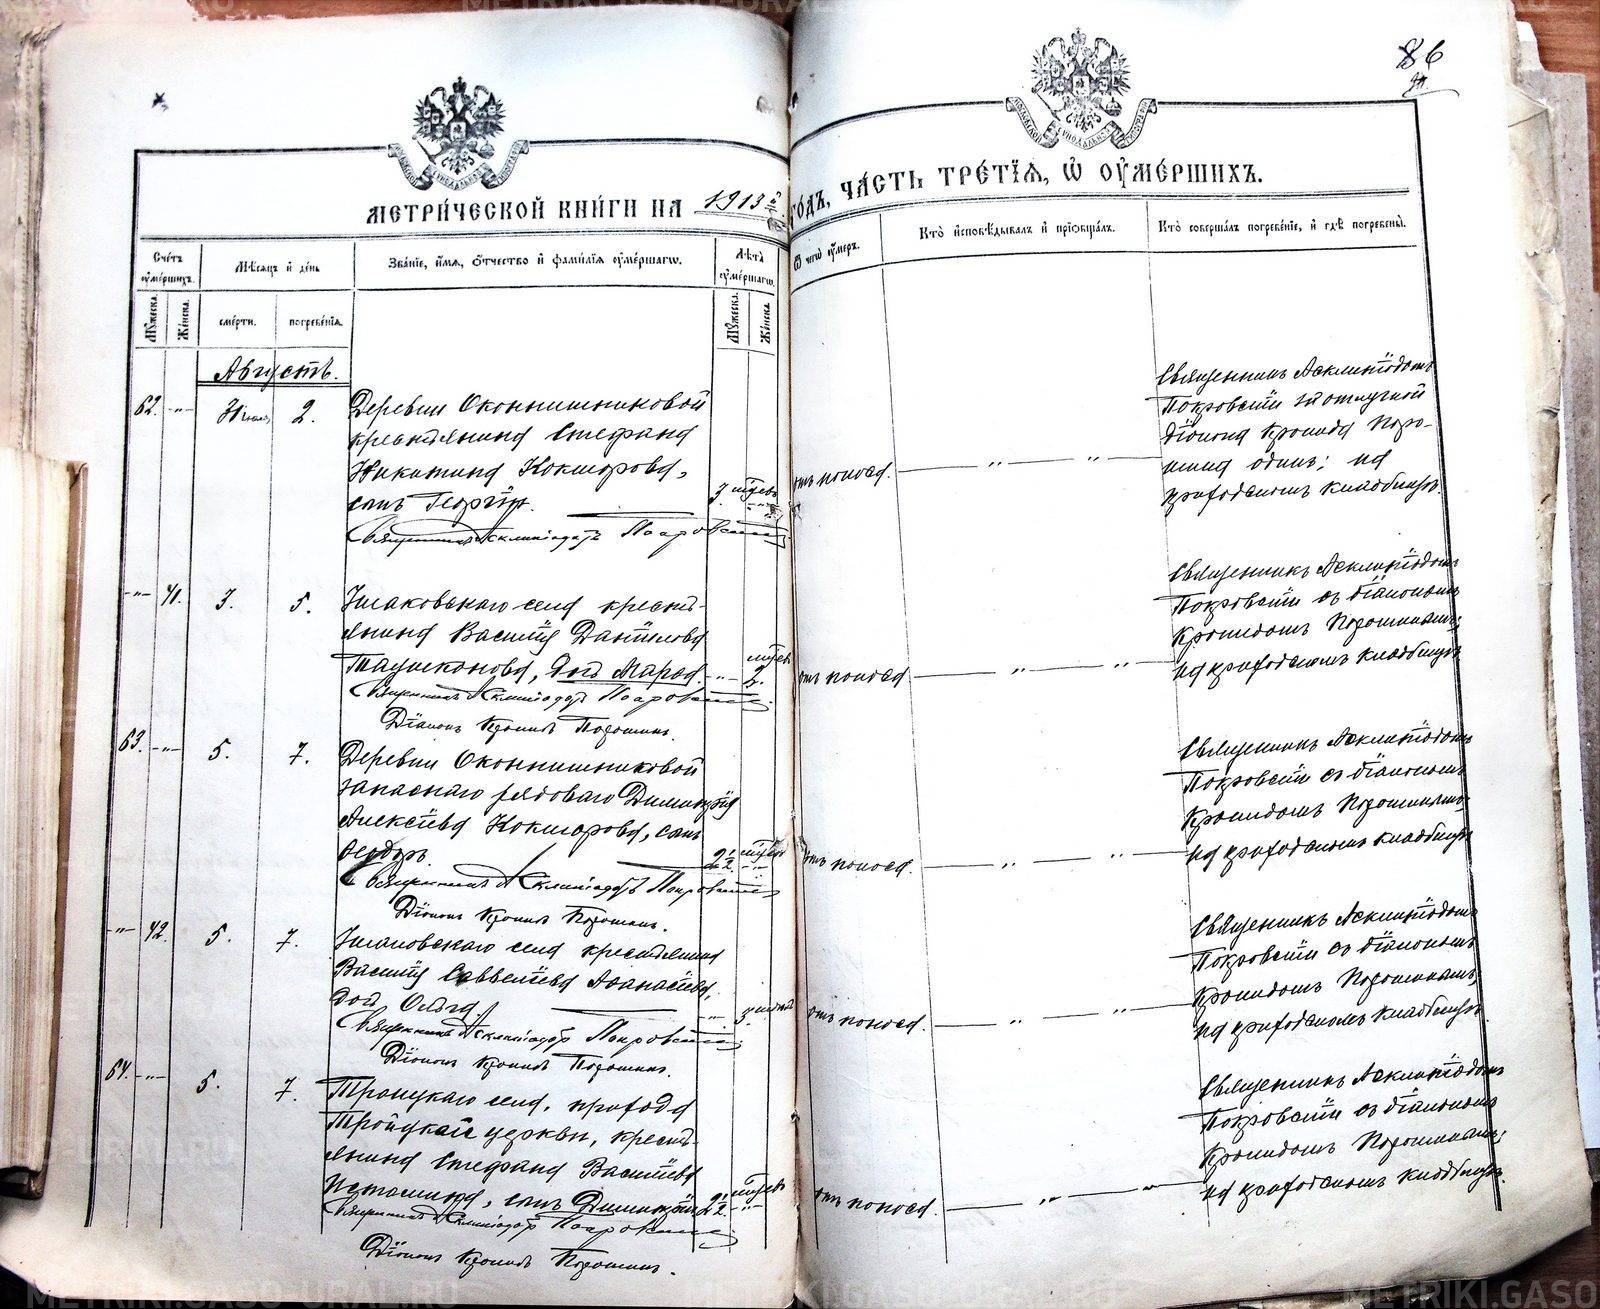 86
МЕТРИЧЕСКОЙ КНИГИ НА 1913й ГОДЪ, ЧАСТЬ ТРЕТІЯ, Ѡ ОУМЕРШИХЪ.
Счетъ оумершихъ.
Мѣсяцъ и день
Званіе, имя, отчество и фамилія оумершагѡ.
Лѣта оумершагѡ.
Ѿ чегѡ оумеръ.
Кто исповѣдывалъ и пріобщалъ.
Кто совершалъ погребеніе, и гдѣ погребены.
Мужеска.
Женска.
смерти.
погребенія.
Мужеска.
Женска.
Августъ.
62. -"- 31 іюля 2.
Деревни Оконнишниковой
крестьянина Стефана
Никитина Кокшарова,
сынъ Георгій.
3 мѣсяц.
Священникъ Асклипіодотъ Покровскій
отъ поноса.
Священникъ Асклипіодотъ
Покровскій за отлучкой
діакона Кронида Поро-
шина одинъ; на
приходскомъ кладбищѣ.
-"- 41. 3. 5.
Ушаковскаго села кресть-
янина Василія Данилова
дочь Марѳа.
мѣсяц.
Священникъ Асклипіодотъ Покровскій
Діаконъ Кронидъ Порошинъ.
отъ поноса
Священникъ Асклипіодотъ
Покровскій съ діакономъ
Кронидомъ Порошинымъ;
на приходскомъ кладбищѣ
63. -"- 5. 7.
Деревни Оконнишниковой
запаснаго рядоваго Димитрія
Алексѣева Кокшарова, сынъ
Ѳеодоръ.
2½ мѣсяц.
Священникъ Асклипіодотъ Покровскій
Діаконъ Кронидъ Порошинъ.
отъ поноса.
Священникъ Асклипіодотъ
Покровскій съ діакономъ
Кронидомъ Порошинымъ
на приходскомъ кладбищѣ
-"- 42. 5. 7.
Ушаковскаго села крестьянина
Василія Савватѣева Аѳанасьева,
дочь Ольга.
Священникъ Асклипіодотъ Покровскій
Діаконъ Кронидъ Порошинъ.
отъ поноса.
Священникъ Асклипіодотъ
Покровскій съ діакономъ
Кронидомъ Порошинымъ;
на приходскомъ кладбищѣ.
64. -"- 5. 7.
Троицкаго села, прихода
Троицкой церкви, кресть-
янина Стефана Васильева
Истомина, сынъ Димитрій
2½ мѣсяц.
Священникъ Асклипіодотъ Покровскій
Діаконъ Кронидъ Порошинъ.
отъ поноса.
Священникъ Асклипіодотъ
Покровскій съ діакономъ
Кронидомъ Порошинымъ;
на приходскомъ кладбищѣ.
METRIKI.GASO-URAL.RU
METRIKI.GASO